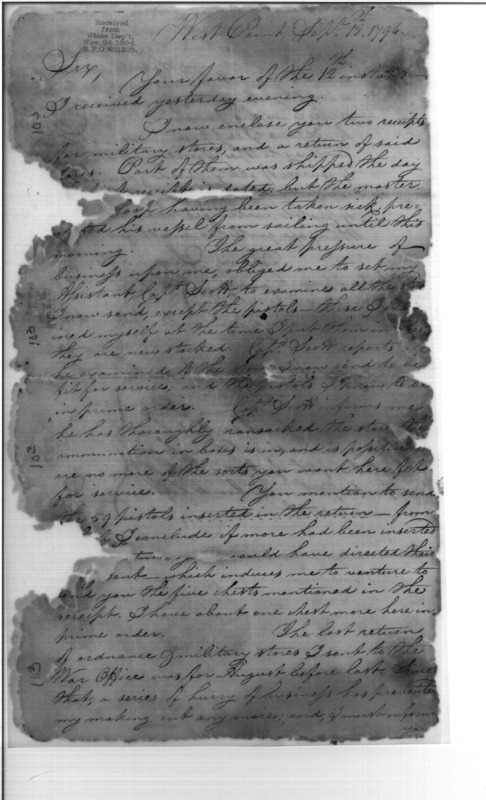 Received
from
State Dep't,
Nov. 24, 1894.
West Point, Sept. 15th 1794
Sir,
Your favor of the 12th instant
I received yesterday evening.
I now enclose you two receipts
for military stores, and a return of said
Part of them was shipped the day
receipt is dated; but the master
having been taken sick, pre=
his vessel from sailing until this
morning. The great pressure of
business upon me, obliged me to set my
Assistant Capt. Scott to examine all the
I now send, except the pistols - these I
myself at the time I put them in
they are new stocked. Capt. Scott reports
he examined & the I now send to be
fit for service; and the pistols I know to be
in prime order. Capt. Scott informs me
he has thoroughly ransacked the store
ammunition in boxes is in, and is positive
are no more of the sorts you want here fit
for service. You mention to send
the 59 pistols inserted in the return - from
I conclude if more had been inserted
would have directed their
sent - which induces me to venture to
send you the five chests mentioned in the
receipt. I have about one chest more here in
prime order. The last return
of ordnance & military stores I sent to the
War Office was for August before last. Since
that, a series of hurry of business has prevented
my making out any more; and, I must inform
you
103
103
103
103